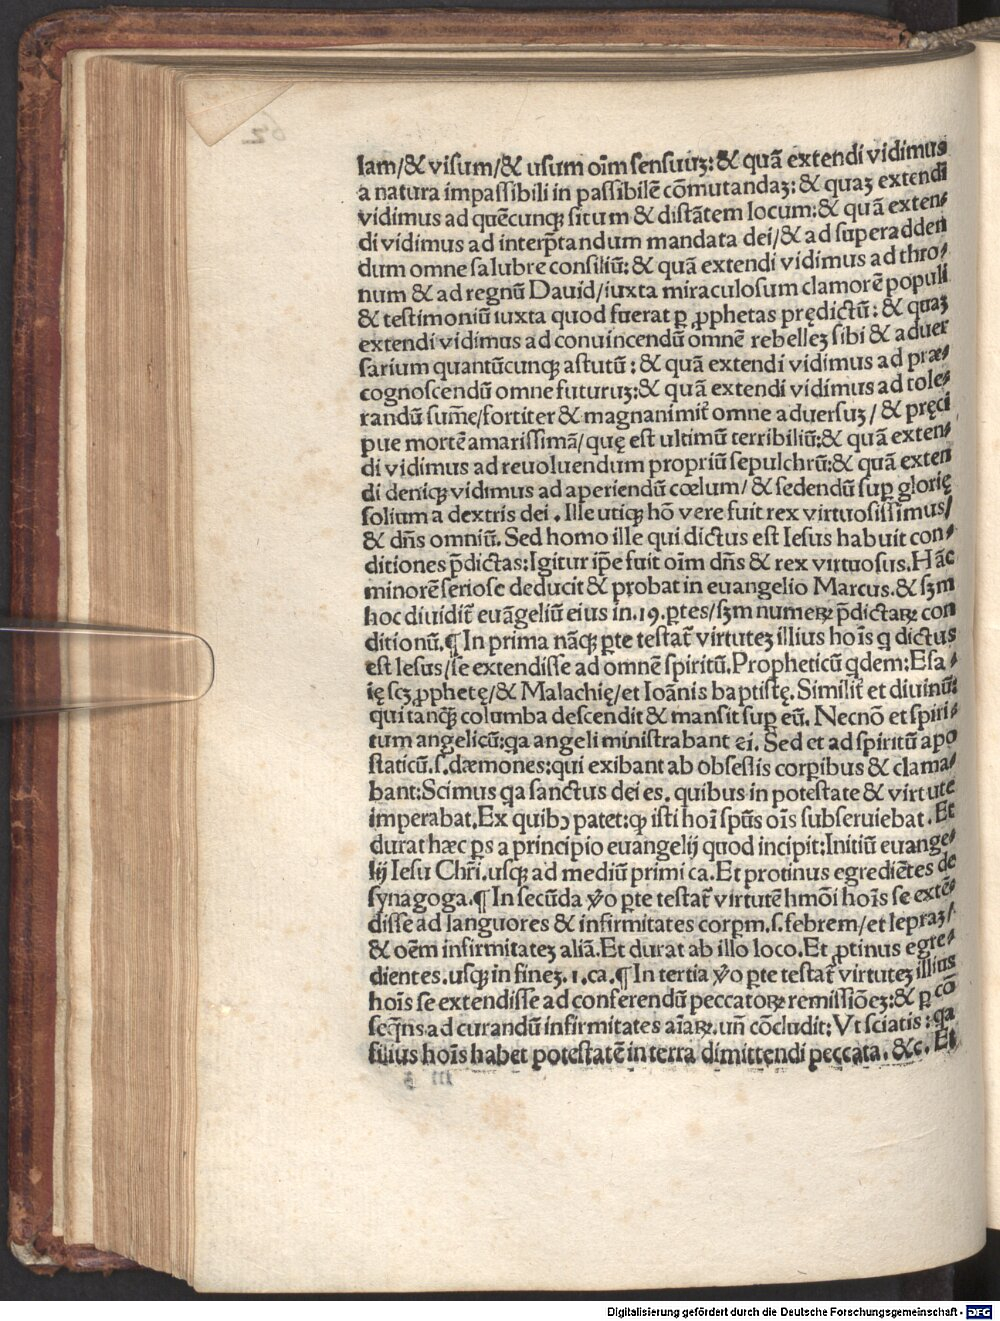 lam/& visum/& usum oīm sensuuꝫ: & quā extendi vidimus
a natura impassibili in passibilē cōmutandaꝫ: & quaꝫ extendi
vidimus ad quēcunqꝫ situm & distātem locum: & quā exten⸗
di vidimus ad interp̄tandum mandata dei/& ad superadden
dum omne salubre consiliū: & quā extendi vidimus ad thro⸗
num & ad regnū Dauid/iuxta miraculosum clamorē populi
& testimoniū iuxta quod fuerat ꝑ ꝓphetas prędictū: & quaꝫ
extendi vidimus ad conuincendū omnē rebelleꝫ sibi & aduer
sarium quantūcunqꝫ astutū: & quā extendi vidimus ad præ⸗
cognoscendū omne futuruꝫ: & quā extendi vidimus ad tole⸗
randū sum̄e/fortiter & magnanimit̄ omne aduersuꝫ/ & pręci
pue mortē amarissimā/quę est ultimū terribiliū: & quā exten⸗
di vidimus ad reuoluendum propriū sepulchrū: & quā exten
di deniqꝫ vidimus ad aperiendū cœlum/ & sedendū suꝑ glorię
solium a dextris dei. Ille utiqꝫ hō vere fuit rex virtuosissimus/
& dn̄s omniū. Sed homo ille qui dictus est Iesus habuit con⸗
ditiones p̄dictas: Igitur ip̄e fuit oīm dn̄s & rex virtuosus. Hāc
minorē seriose deducit & probat in euangelio Marcus. & sꝫm
hoc diuidit̄ euāgeliū eius in .19. ꝑtes/sꝫm numeꝝ p̄dictaꝝ con
ditionū. ¶ In prima nāqꝫ ꝑte testat̄ virtuteꝫ illius hoīs q dictus
est Iesus/se extendisse ad omnē spiritū. Propheticū qdem: Esa⸗
ię scꝫ ꝓphetę/& Malachię/et Ioānis baptistę. Similit̄ et diuinū:
qui tanqꝫ columba descendit & mansit suꝑ eū. Necnō et spiri⸗
tum angelicū: qa angeli ministrabant ei. Sed et ad spiritū apo
staticū .s. dæmones: qui exibant ab obsessis corꝑibus & clama⸗
bant: Scimus qa sanctus dei es. quibus in potestate & virtute
imperabat. Ex quibꝰ patet: ꝙ isti hoī spūs oīs subseruiebat. Et
durat hæc ꝑs a principio euangelij quod incipit: Initiū euange⸗
lij Iesu Chr̄i. usqꝫ ad mediū primi ca. Et protinus egrediētes de
synagoga. ¶ In secūda ꝟo ꝑte testat̄ virtutē hmōi hoīs se extē⸗
disse ad languores & infirmitates corꝑm .s. febrem/et lepraꝫ/
& oēm infirmitateꝫ aliā. Et durat ab illo loco. Et ꝓtinus egre⸗
dientes. usqꝫ in fineꝫ .1. ca. ¶ In tertia ꝟo ꝑte testat̄ virtuteꝫ illius
hoīs se extendisse ad conferendū peccatoꝝ remissiōeꝫ: & ꝑ cō
seq̄ns ad curandū infirmitates aīaꝝ. un̄ cōcludit: Vt sciatis: qa
filius hoīs habet potestatē in terra dimittendi peccata. &c. Et
Digitalisierung gefördert durch die Deutsche Forschungsgemeinschaft - DFG